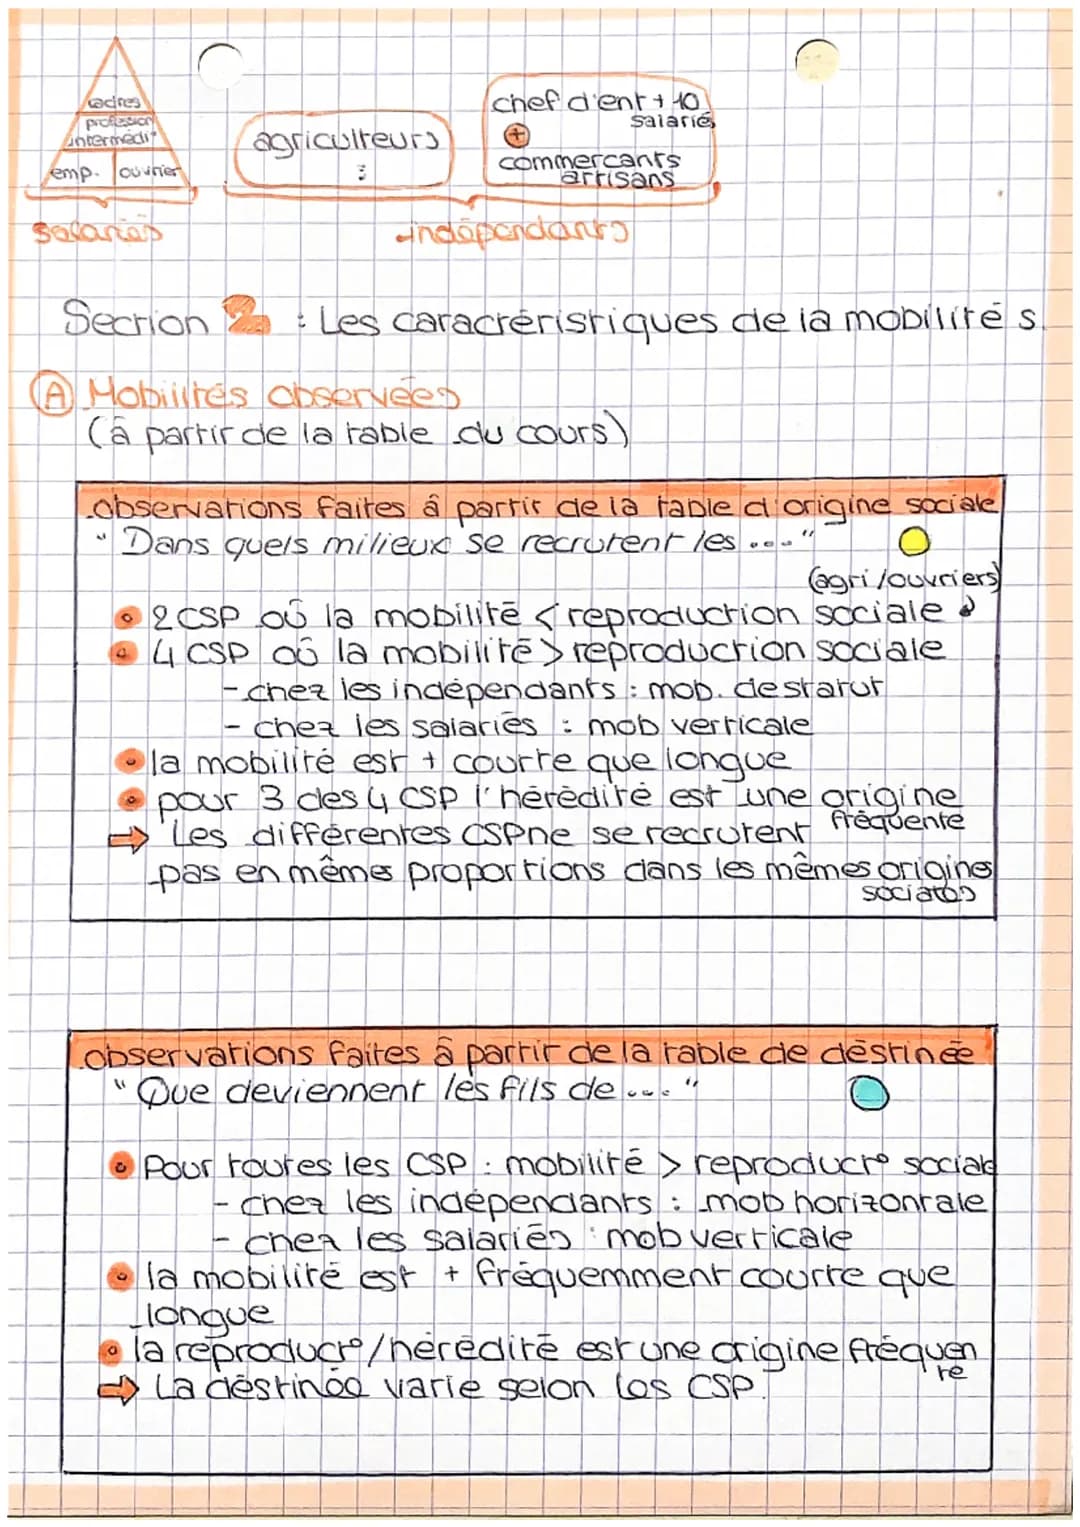 cadres
profession
intermédi
emp. ouvrier
agriculteurs
chef d'ent + 10
salariés
+
commercants
artisans
salariés
indépendants
Section 2 : Les caractéristiques de la mobilité s.
A Mobilités observées
(à partir de la table du cours)
observations faites à partir de la table d'origine sociale
"Dans quels milieux se recrutent les ..."
(agri/ouvriers)
2 CSP où la mobilité < reproduction sociale
4 CSP où la mobilité > reproduction sociale
- chez les indépendants : mob. de statut
- chez les salariés : mob verticale
la mobilité est + courte que longue
pour 3 des 4 CSP l'hérédité est une origine
fréquente
⇒ Les différentes CSP ne se recrutent
pas en mêmes proportions dans les mêmes origines
sociales
observations faites à partir de la table de destinée
"Que deviennent les fils de ..."
Pour toutes les CSP : mobilité > reproduct° sociale
- chez les indépendants : mob horizontale
- chez les salariés : mob verticale
la mobilité est + fréquemment courte que
longue
la reproduct°/hérédité est une origine fréquen
te
⇒ La destinée varie selon les CSP.